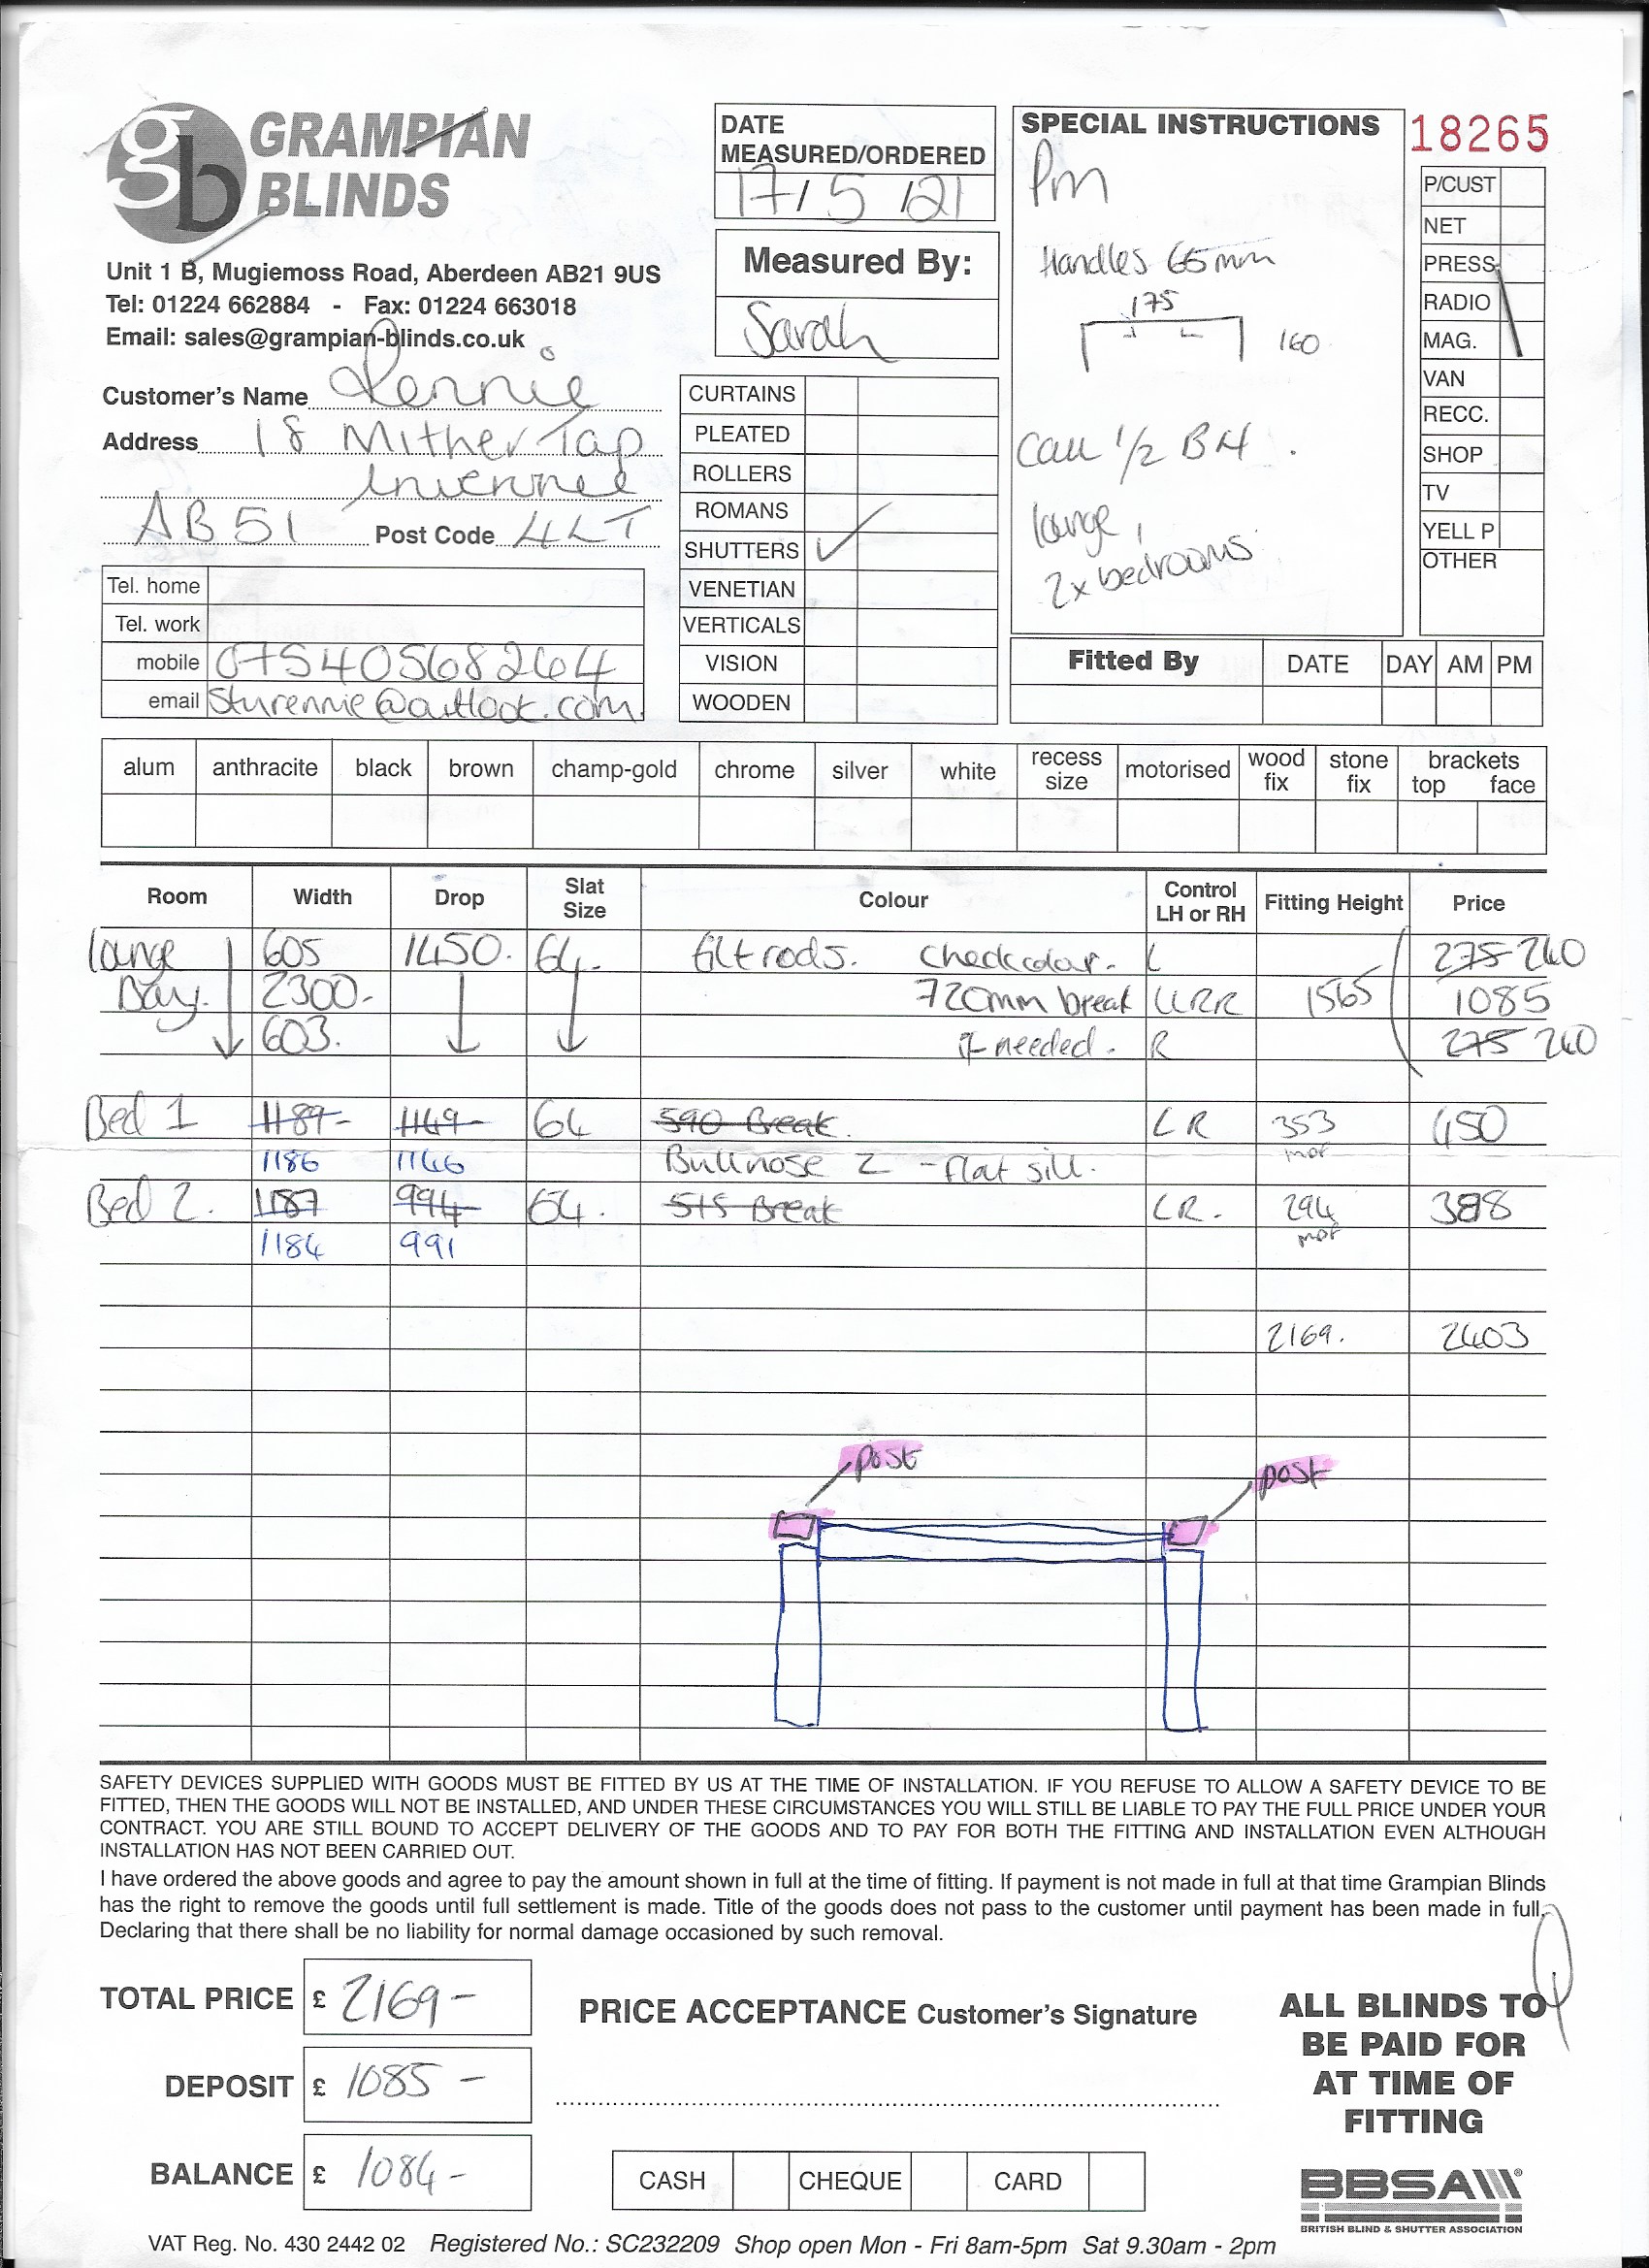 GRAMPIAN
BLINDS
Unit 1 B, Mugiemoss Road, Aberdeen AB21 9US
Tel: 01224 662884 - Fax: 01224 663018
Email: sales@grampian-blinds.co.uk
Customer's Name Rennie
Address 18 Mither Tap
Inverurie
AB51 Post Code 4LT
Tel. home
Tel. work
mobile 07540568264
email sturennie@outlook.com
DATE
MEASURED/ORDERED
17/5/21
Measured By:
Sarah
CURTAINS
PLEATED
ROLLERS
ROMANS
SHUTTERS ✓
VENETIAN
VERTICALS
VISION
WOODEN
SPECIAL INSTRUCTIONS
Pm
Handles 65mm
175
160
Call 1/2 B4.
lounge,
2x bedrooms
18265
P/CUST
NET
PRESS
RADIO
MAG.
VAN
RECC.
SHOP
TV
YELL P
OTHER
Fitted By DATE DAY AM PM
alum anthracite black brown champ-gold chrome silver white recess size motorised wood fix stone fix brackets top face
Room Width Drop Slat Size Colour Control LH or RH Fitting Height Price
lounge 605 1450. 64. tilt rods. check colour. L 275 240
Bay. 2300- 720mm break LLRR 1565 1085
603. if needed. R 275 240
Bed 1 1189- 1149- 64 590 Break. LR 353 450
1186 1146 Bullnose 2 - flat sill.
Bed 2. 1187 994- 64. 515 Break LR. 294 388
1184 991
2169. 2403
post
post
SAFETY DEVICES SUPPLIED WITH GOODS MUST BE FITTED BY US AT THE TIME OF INSTALLATION. IF YOU REFUSE TO ALLOW A SAFETY DEVICE TO BE
FITTED, THEN THE GOODS WILL NOT BE INSTALLED, AND UNDER THESE CIRCUMSTANCES YOU WILL STILL BE LIABLE TO PAY THE FULL PRICE UNDER YOUR
CONTRACT. YOU ARE STILL BOUND TO ACCEPT DELIVERY OF THE GOODS AND TO PAY FOR BOTH THE FITTING AND INSTALLATION EVEN ALTHOUGH
INSTALLATION HAS NOT BEEN CARRIED OUT.
I have ordered the above goods and agree to pay the amount shown in full at the time of fitting. If payment is not made in full at that time Grampian Blinds
has the right to remove the goods until full settlement is made. Title of the goods does not pass to the customer until payment has been made in full.
Declaring that there shall be no liability for normal damage occasioned by such removal.
TOTAL PRICE £ 2169-
DEPOSIT £ 1085-
BALANCE £ 1084-
PRICE ACCEPTANCE Customer's Signature
CASH CHEQUE CARD
ALL BLINDS TO
BE PAID FOR
AT TIME OF
FITTING
BBSA
BRITISH BLIND & SHUTTER ASSOCIATION
VAT Reg. No. 430 2442 02 Registered No.: SC232209 Shop open Mon - Fri 8am-5pm Sat 9.30am - 2pm